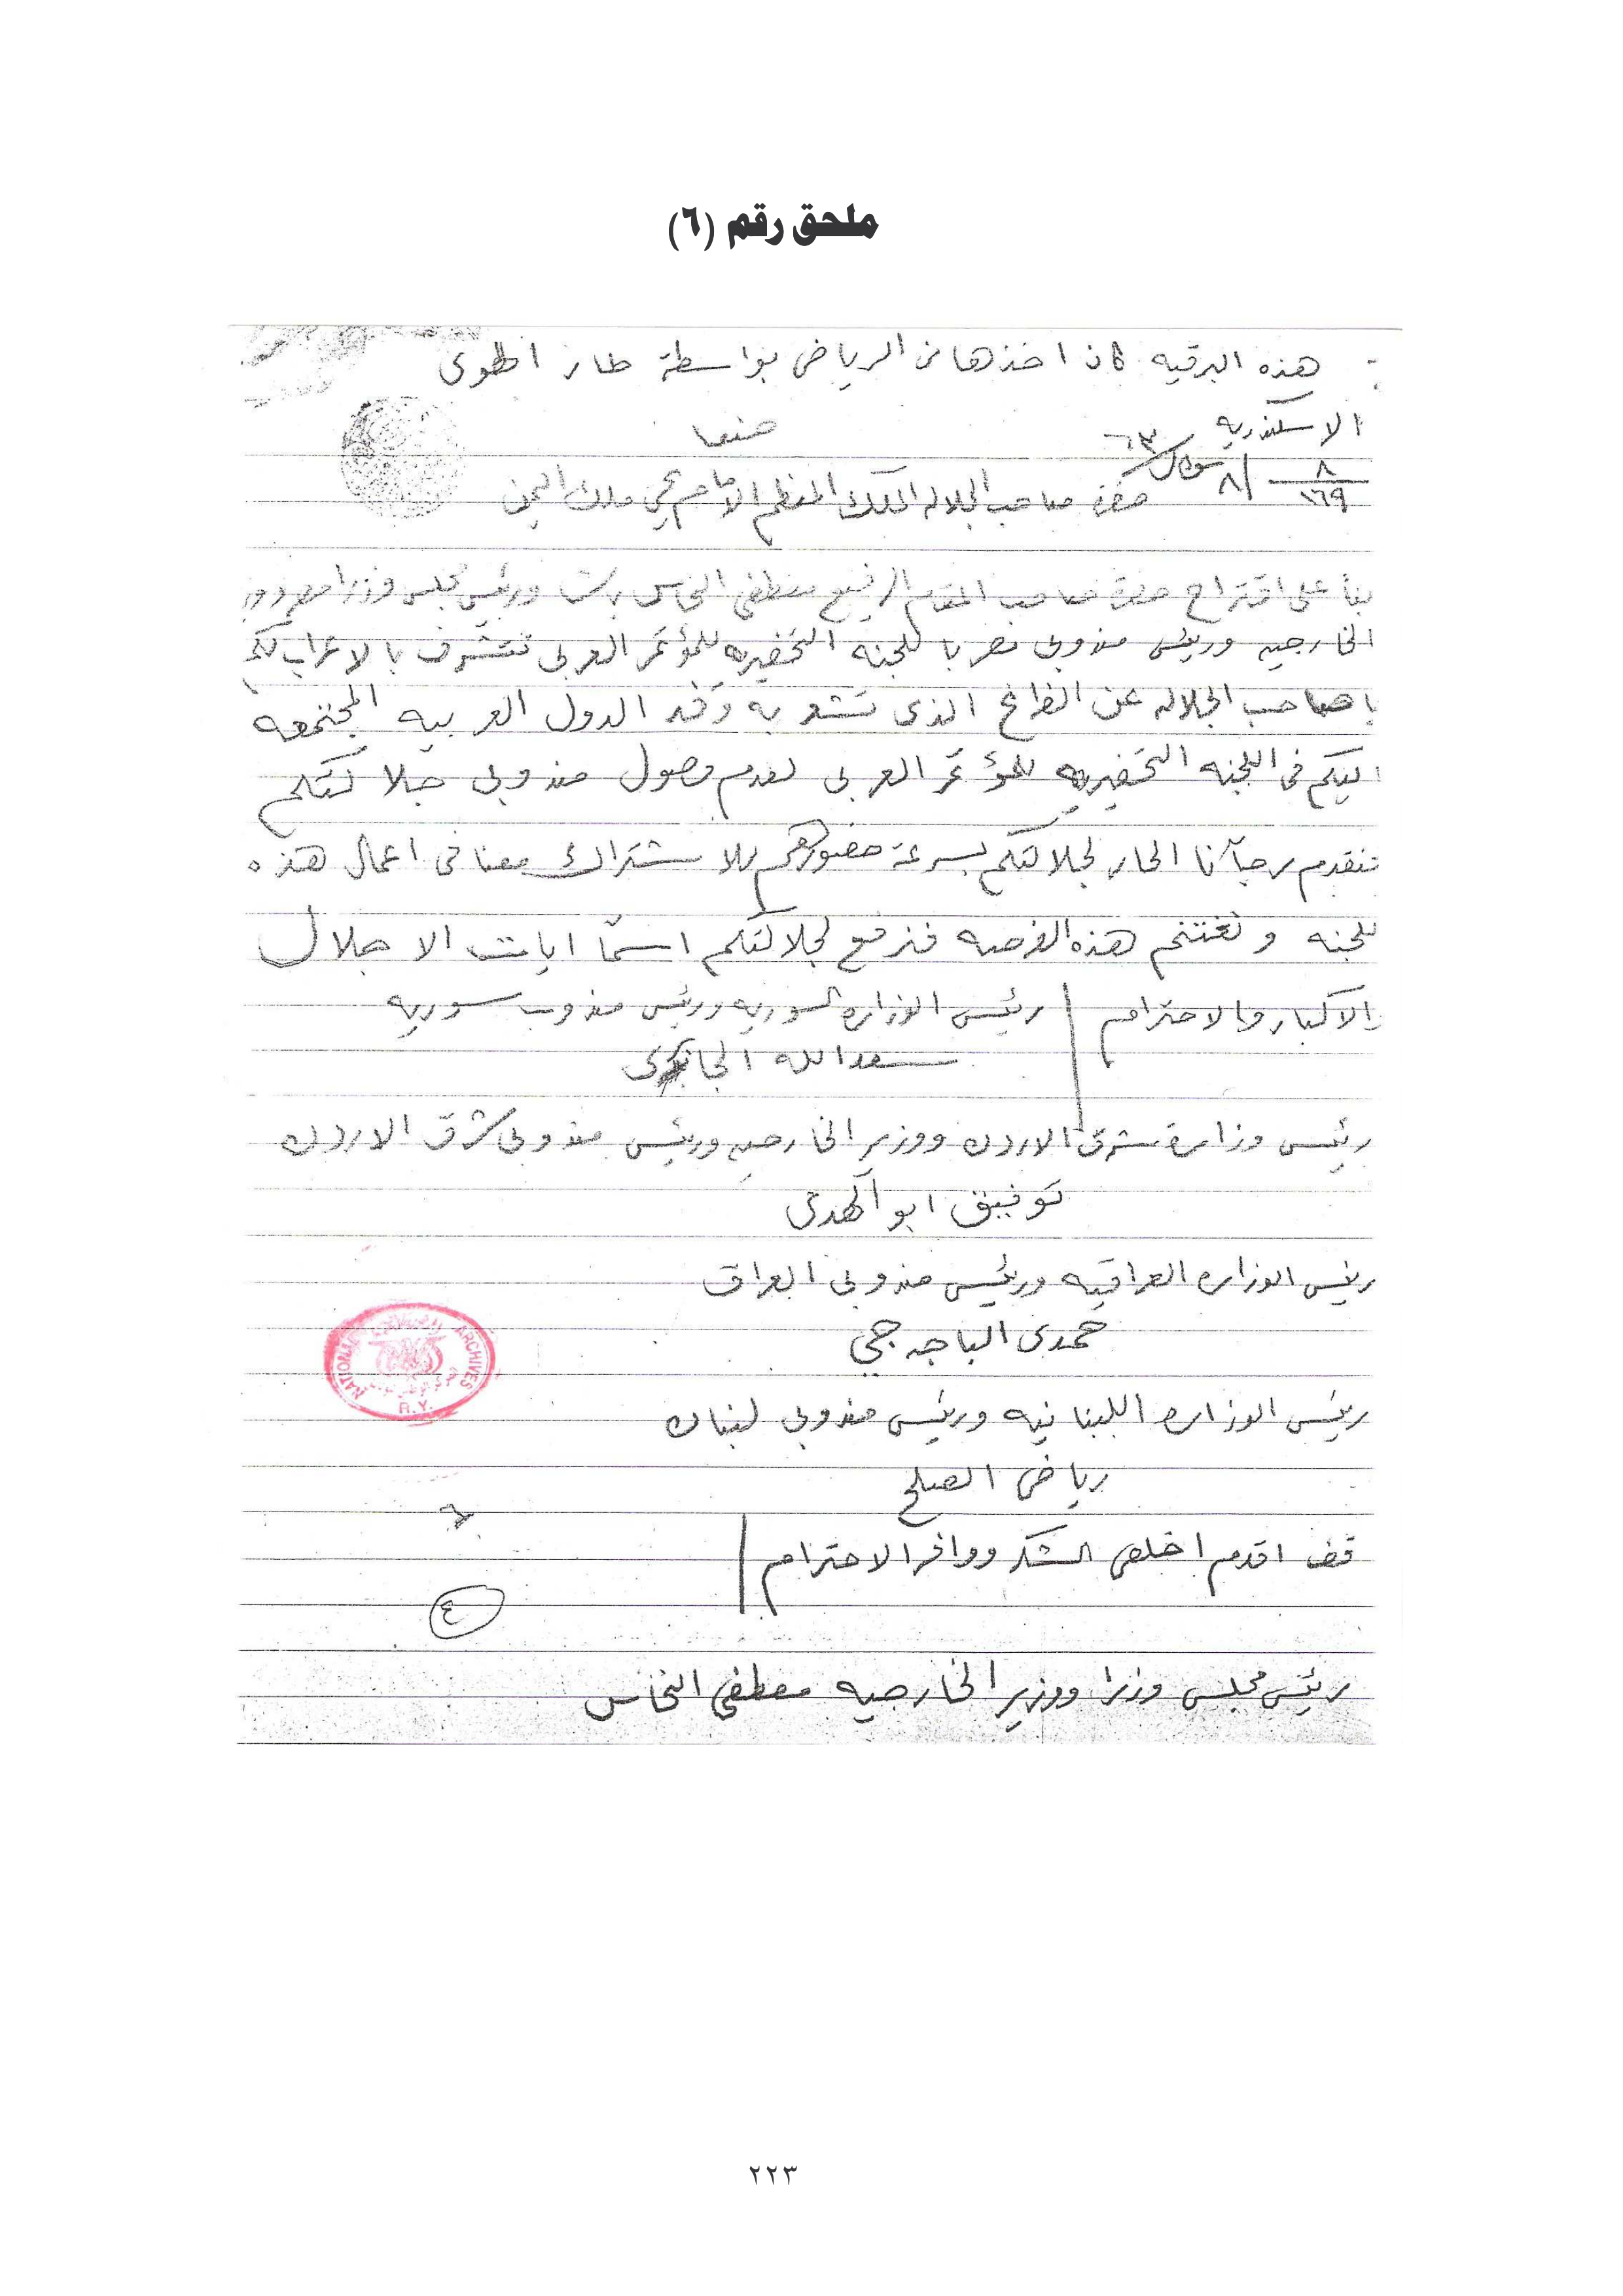 ملحق رقم (٦)
هذه البرقيه كان اخذها من الرياض بواسطة
الاسكندريه صنعا
٨ / ١٦٩ ٨ شوال ٦٣
حضرة صاحب الجلاله الملك المعظم الامام يحي ملك اليمن
بنأ على اقتراح حضرة صاحب المقام الرفيع مصطفى النحاس باشا ورئيس مجلس وزرا مصر ووز
الخارجيه ورئيس مندوبى مصر با للجنه التحضيريه للمؤتمر العربى نتشرف بالاعراب لكم
يا صاحب الجلاله عن الفراغ الذى تشعر به وفد الدول العربيه المجتمعه
اليكم فى اللجنه التحضيريه للمؤتمر العربى لعدم وصول مندوبى جلالتكم
نتقدم برجآئنا الحار لجلالتكم بسرعة حضوركم للاشتراك معنا فى اعمال هذه
للجنه ونغتنم هذه الفرصه فنرفع لجلالتكم اسمّا ايات الاجلال
والاكبار والاحترام رئيس الوزاره السوريه ورئيس مندوب سوريه
سعدالله الجابرى
رئيس وزارة شرق الاردن ووزير الخارجيه ورئيس مندوبى شرق الاردن
توفيق ابو الهدى
رئيس الوزاره العراقيه ورئيس مندوبى العراق
حمدى الباجه جي
NATIONAL ARCHIVES
R.Y.
رئيس الوزاره اللبنانيه ورئيس مندوبى لبنان
رياض الصلح
قف اقدم اخلص الشكر ووافر الاحترام
٤
رئيس مجلس وزرا ووزير الخارجيه مصطفى النحاس
٢٢٣